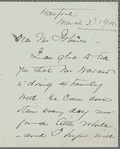 Hartford
March 2ᵈ 19
Dear Mr
I am glad to tell
you that Mr
is doing
well. He came down
stairs every day now
for a little while
- and I hope will